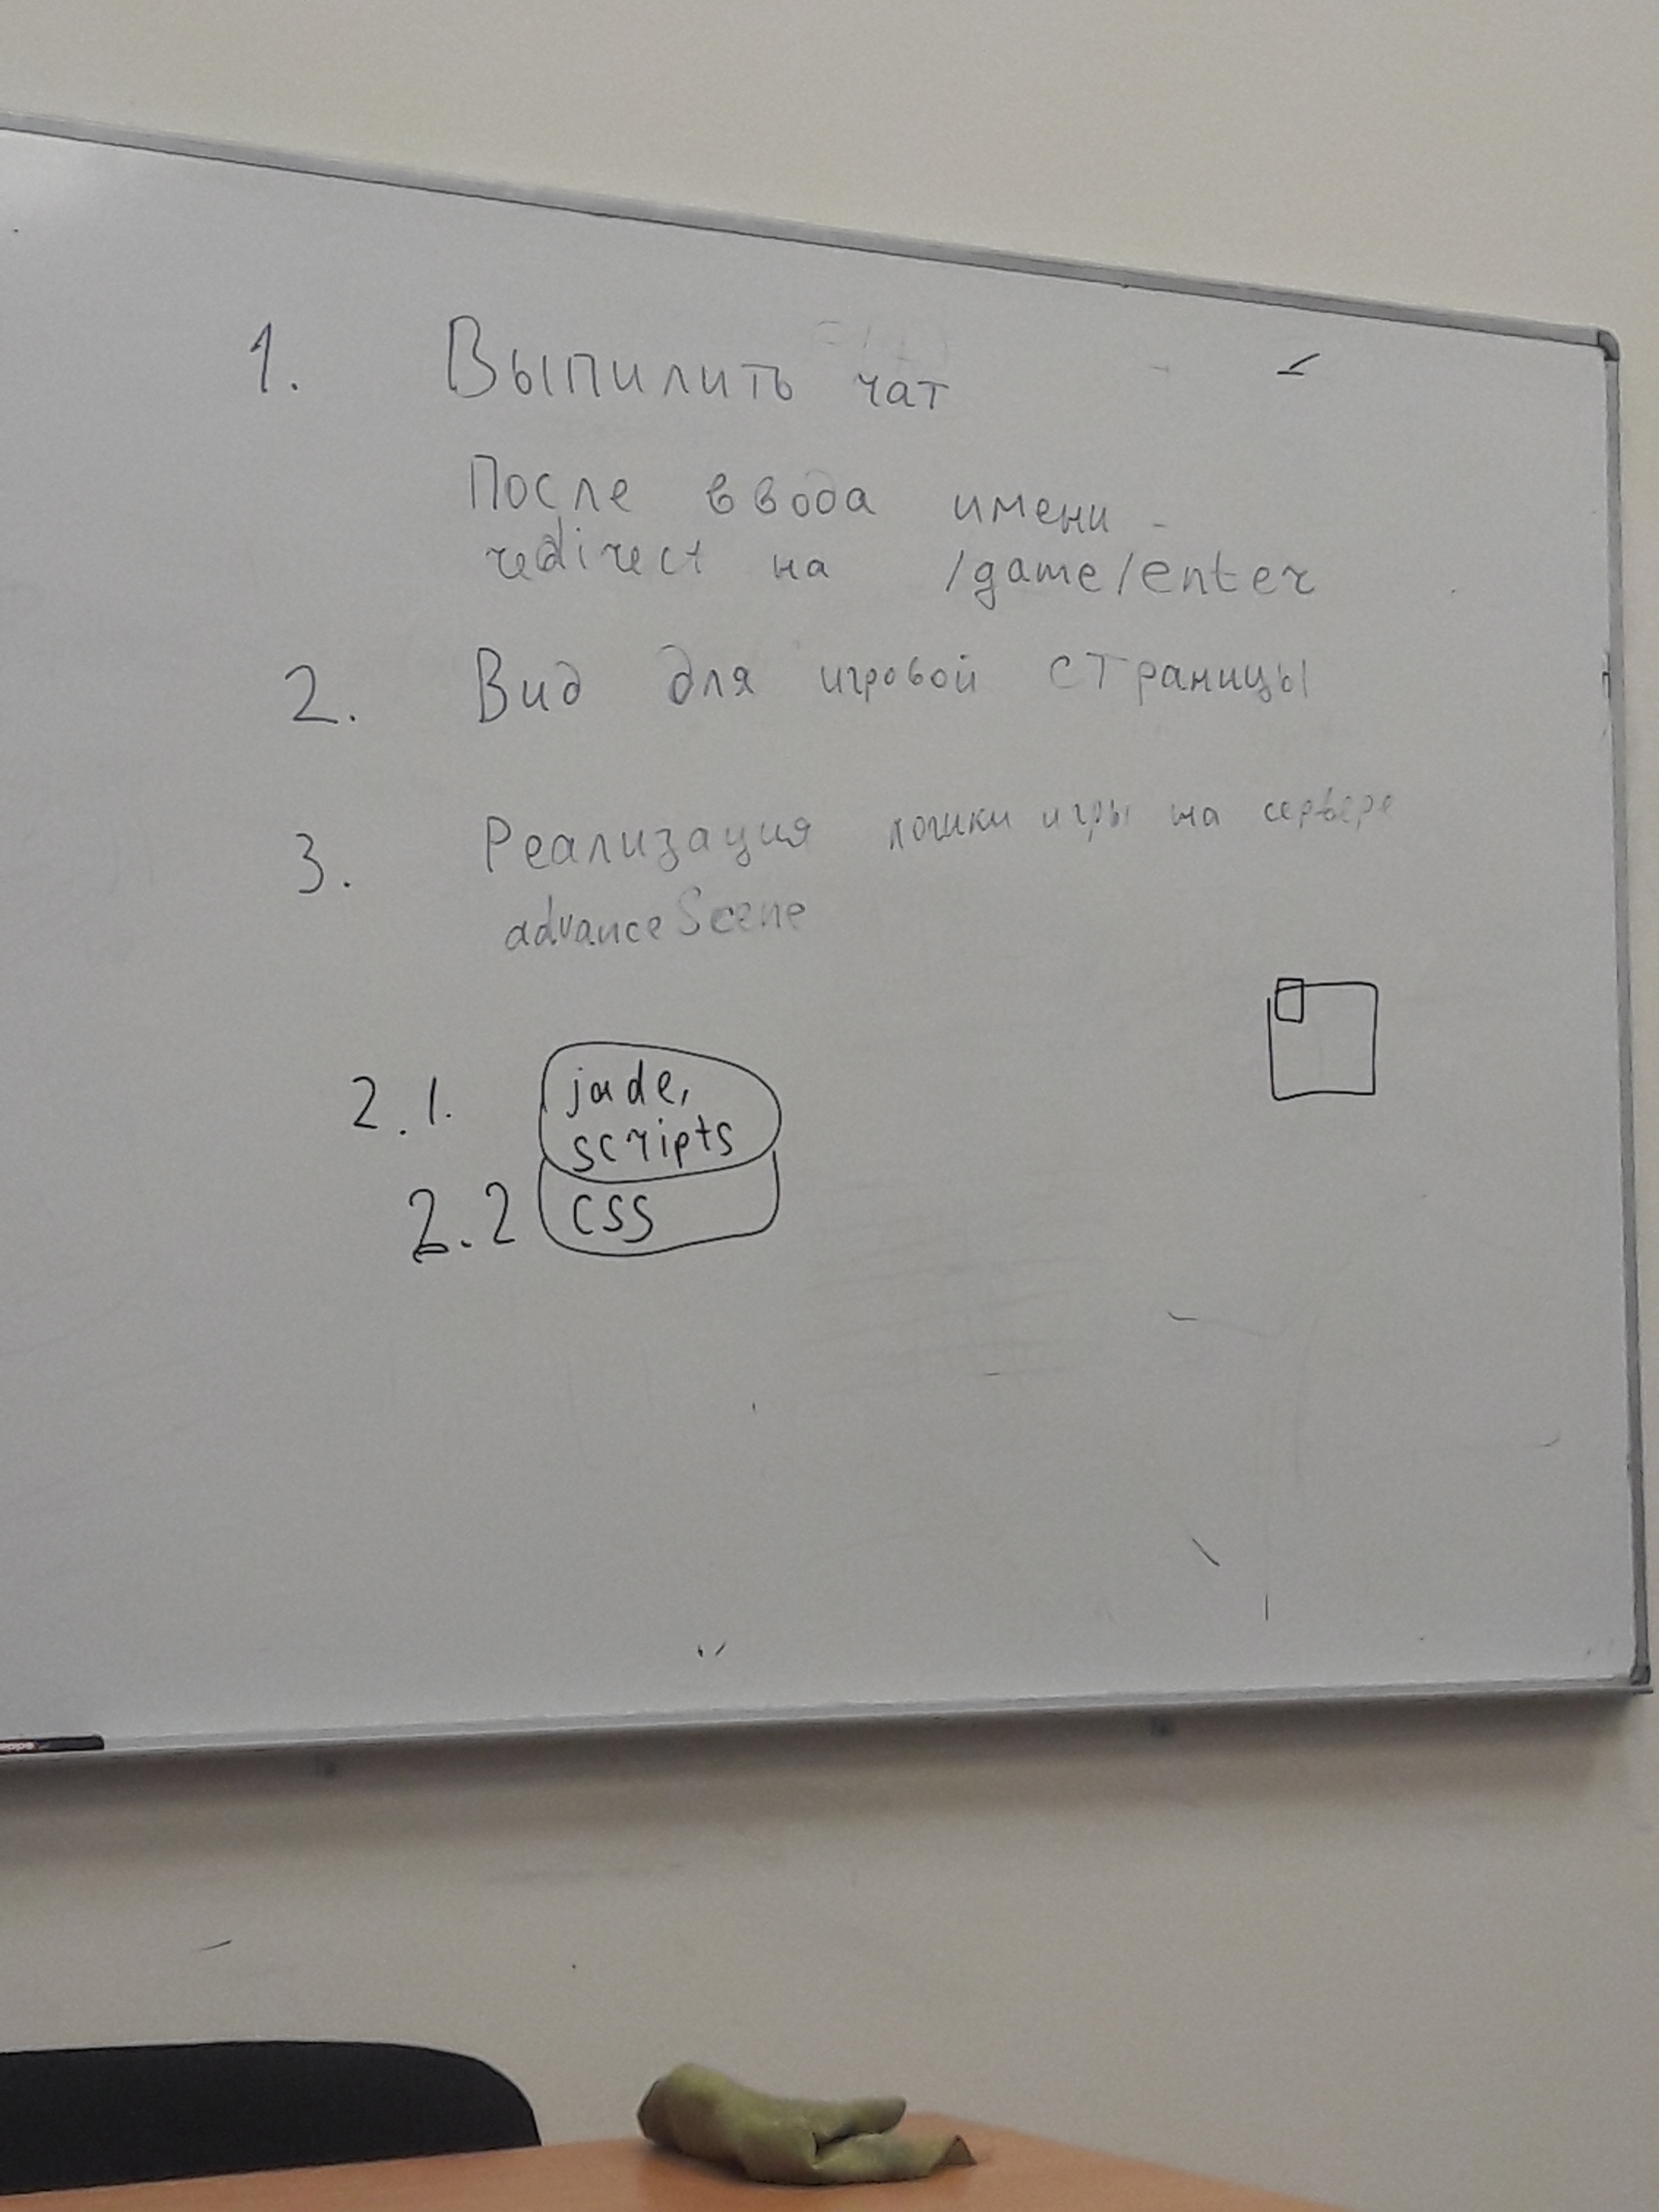 1. Выпилить чат
После ввода имени -
redirect на /game/enter
2. Вид для игровой страницы
3. Реализация логики игры на сервере
advanceScene
2.1. jade,
scripts
2.2 css